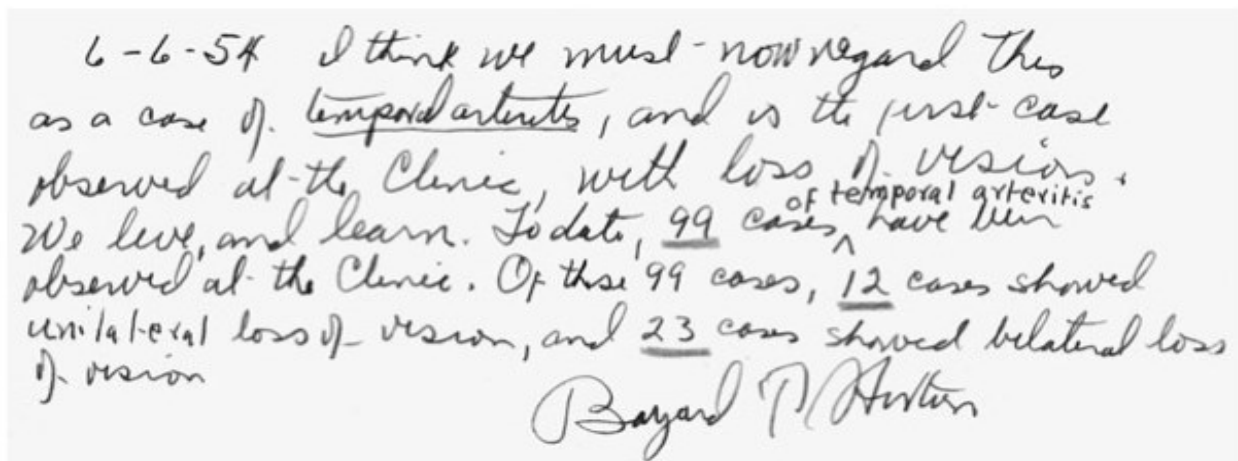 6-6-54 I think we must now regard this
as a case of temporal arteritis, and is the first case
observed at the Clinic, with loss of vision.
We live, and learn. To date, 99 cases of temporal arteritis have been
observed at the Clinic. Of these 99 cases, 12 cases showed
unilateral loss of vision, and 23 cases showed bilateral loss
of vision
Bayard T Horton